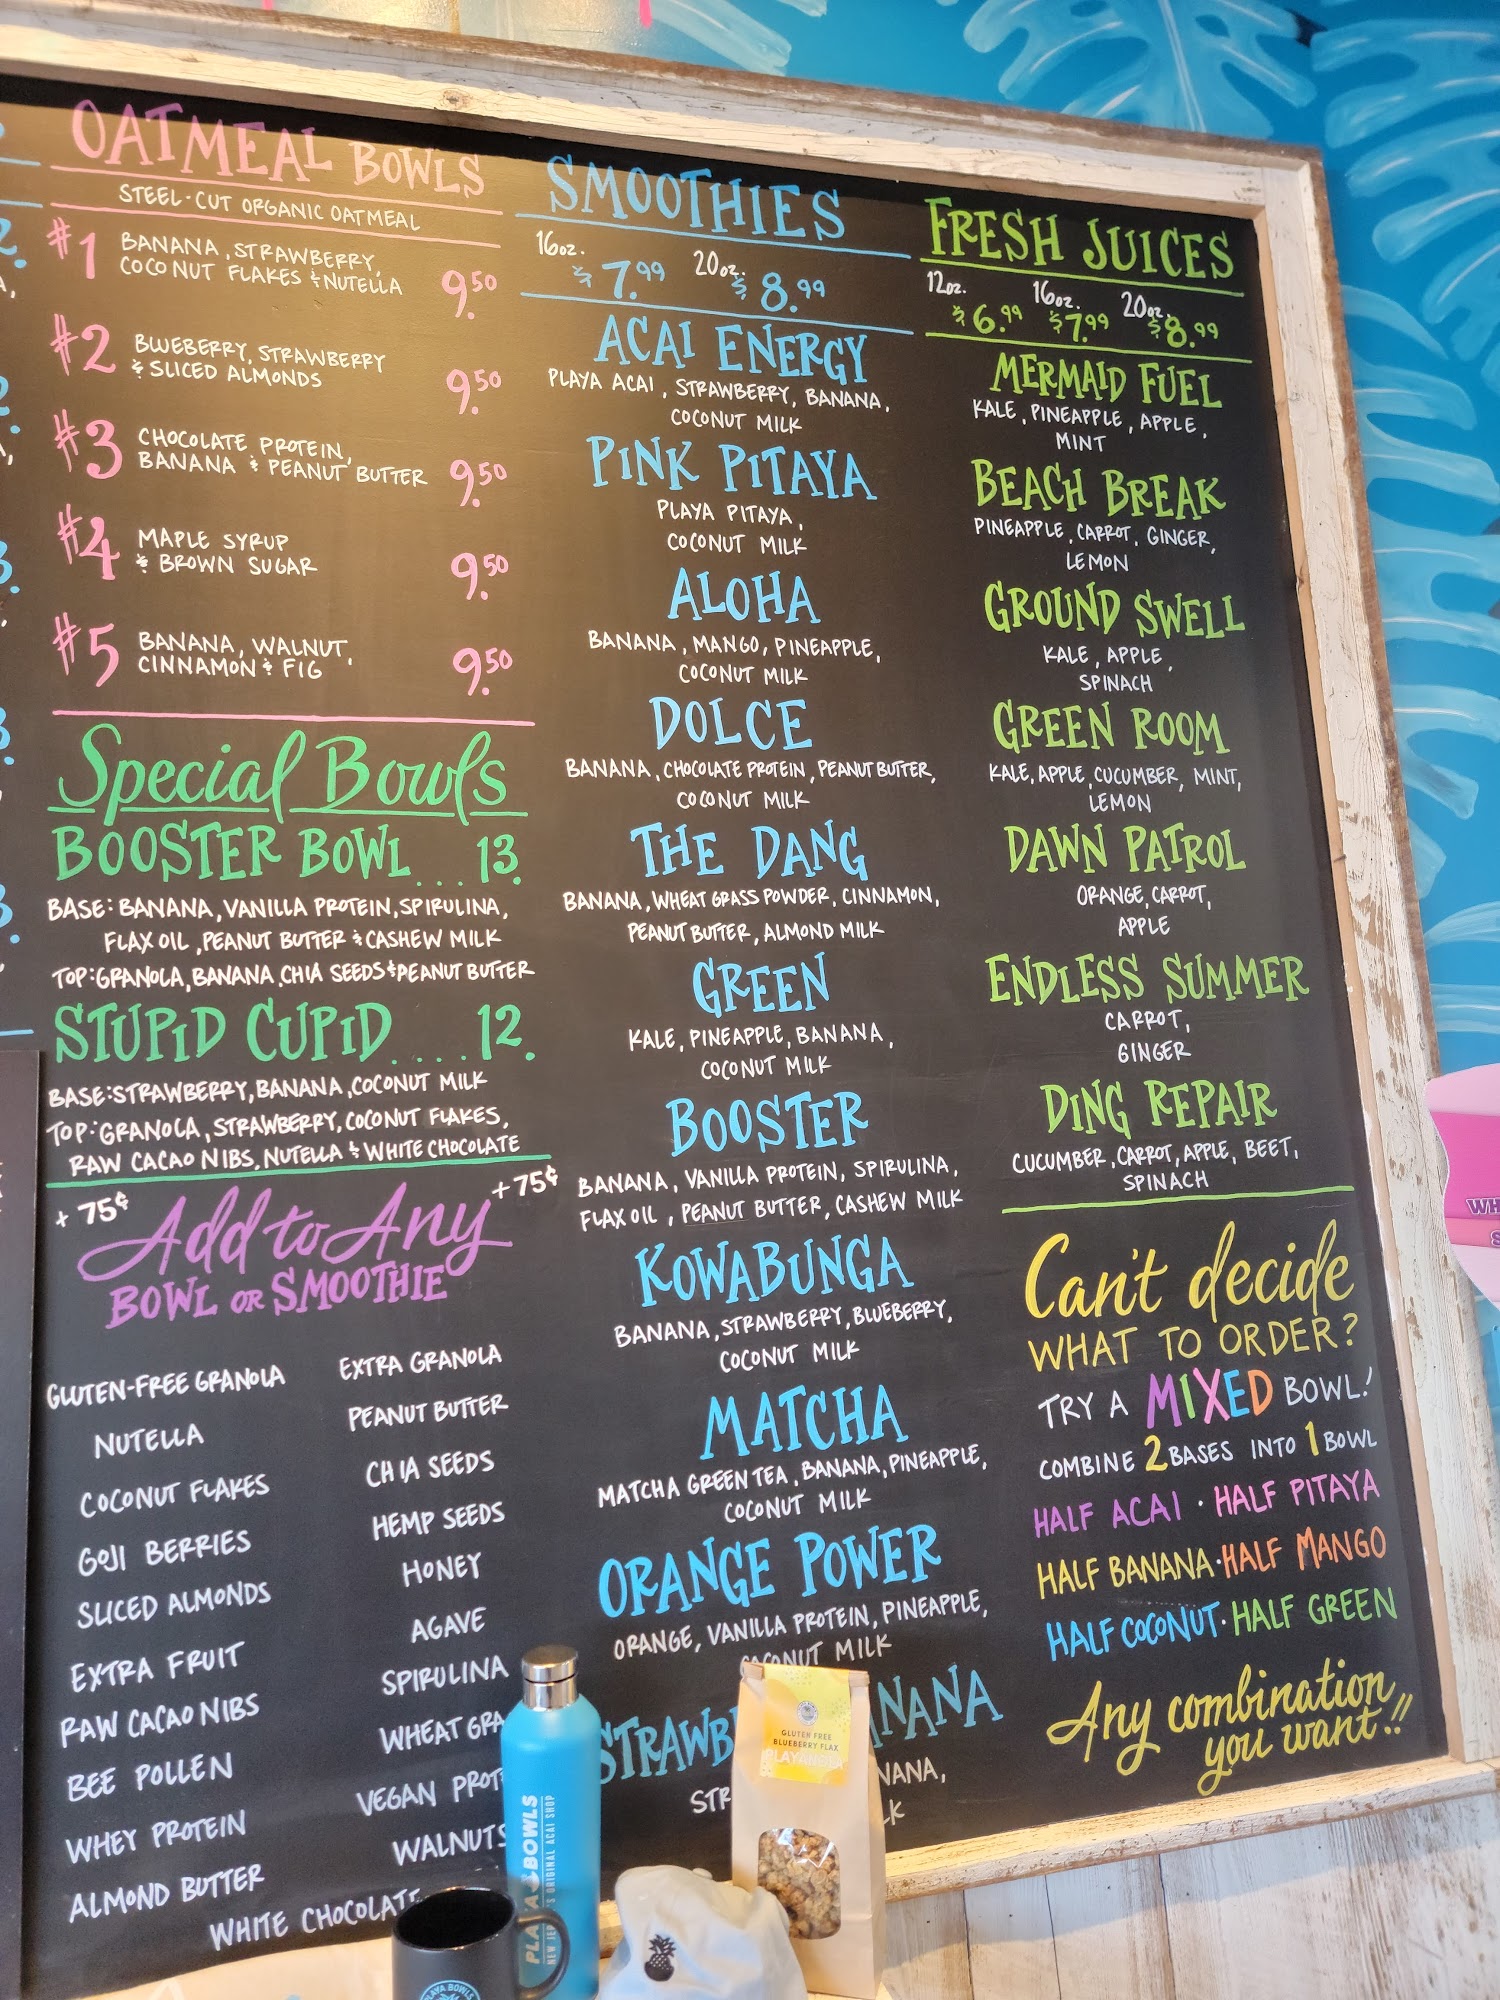 OATMEAL BOWLS
STEEL-CUT ORGANIC OATMEAL
#1 BANANA, STRAWBERRY,
COCONUT FLAKES & NUTELLA 9.50
#2 BLUEBERRY, STRAWBERRY
& SLICED ALMONDS 9.50
#3 CHOCOLATE PROTEIN,
BANANA & PEANUT BUTTER 9.50
#4 MAPLE SYRUP
& BROWN SUGAR 9.50
#5 BANANA, WALNUT,
CINNAMON & FIG 9.50
Special Bowls
BOOSTER BOWL... 13.
BASE: BANANA, VANILLA PROTEIN, SPIRULINA,
FLAX OIL, PEANUT BUTTER & CASHEW MILK
TOP: GRANOLA, BANANA, CHIA SEEDS & PEANUT BUTTER
STUPID CUPID.... 12.
BASE: STRAWBERRY, BANANA, COCONUT MILK
TOP: GRANOLA, STRAWBERRY, COCONUT FLAKES,
RAW CACAO NIBS, NUTELLA & WHITE CHOCOLATE
+75¢ Add to Any +75¢
BOWL OR SMOOTHIE
GLUTEN-FREE GRANOLA
NUTELLA
COCONUT FLAKES
GOJI BERRIES
SLICED ALMONDS
EXTRA FRUIT
RAW CACAO NIBS
BEE POLLEN
WHEY PROTEIN
ALMOND BUTTER
EXTRA GRANOLA
PEANUT BUTTER
CHIA SEEDS
HEMP SEEDS
HONEY
AGAVE
SPIRULINA
WHEAT GRA
VEGAN PROT
WALNUTS
WHITE CHOCOLATE
SMOOTHIES
16oz. $7.99 20oz. $8.99
ACAI ENERGY
PLAYA ACAI, STRAWBERRY, BANANA,
COCONUT MILK
PINK PITAYA
PLAYA PITAYA,
COCONUT MILK
ALOHA
BANANA, MANGO, PINEAPPLE,
COCONUT MILK
DOLCE
BANANA, CHOCOLATE PROTEIN, PEANUT BUTTER,
COCONUT MILK
THE DANG
BANANA, WHEAT GRASS POWDER, CINNAMON,
PEANUT BUTTER, ALMOND MILK
GREEN
KALE, PINEAPPLE, BANANA,
COCONUT MILK
BOOSTER
BANANA, VANILLA PROTEIN, SPIRULINA,
FLAX OIL, PEANUT BUTTER, CASHEW MILK
KOWABUNGA
BANANA, STRAWBERRY, BLUEBERRY,
COCONUT MILK
MATCHA
MATCHA GREEN TEA, BANANA, PINEAPPLE,
COCONUT MILK
ORANGE POWER
ORANGE, VANILLA PROTEIN, PINEAPPLE,
COCONUT MILK
STRAWB NANA
STR NANA,
LK
FRESH JUICES
12oz. $6.99 16oz. $7.99 20oz. $8.99
MERMAID FUEL
KALE, PINEAPPLE, APPLE,
MINT
BEACH BREAK
PINEAPPLE, CARROT, GINGER,
LEMON
GROUND SWELL
KALE, APPLE,
SPINACH
GREEN ROOM
KALE, APPLE, CUCUMBER, MINT,
LEMON
DAWN PATROL
ORANGE, CARROT,
APPLE
ENDLESS SUMMER
CARROT,
GINGER
DING REPAIR
CUCUMBER, CARROT, APPLE, BEET,
SPINACH
Can't decide
WHAT TO ORDER?
TRY A MIXED BOWL!
COMBINE 2 BASES INTO 1 BOWL
HALF ACAI · HALF PITAYA
HALF BANANA · HALF MANGO
HALF COCONUT · HALF GREEN
Any combination
you want!!
GLUTEN FREE
BLUEBERRY FLAX
PLAYANOLA
PLAYA BOWLS
NEW JERSEY'S ORIGINAL ACAI SHOP
PLAYA BOWLS
WH
S